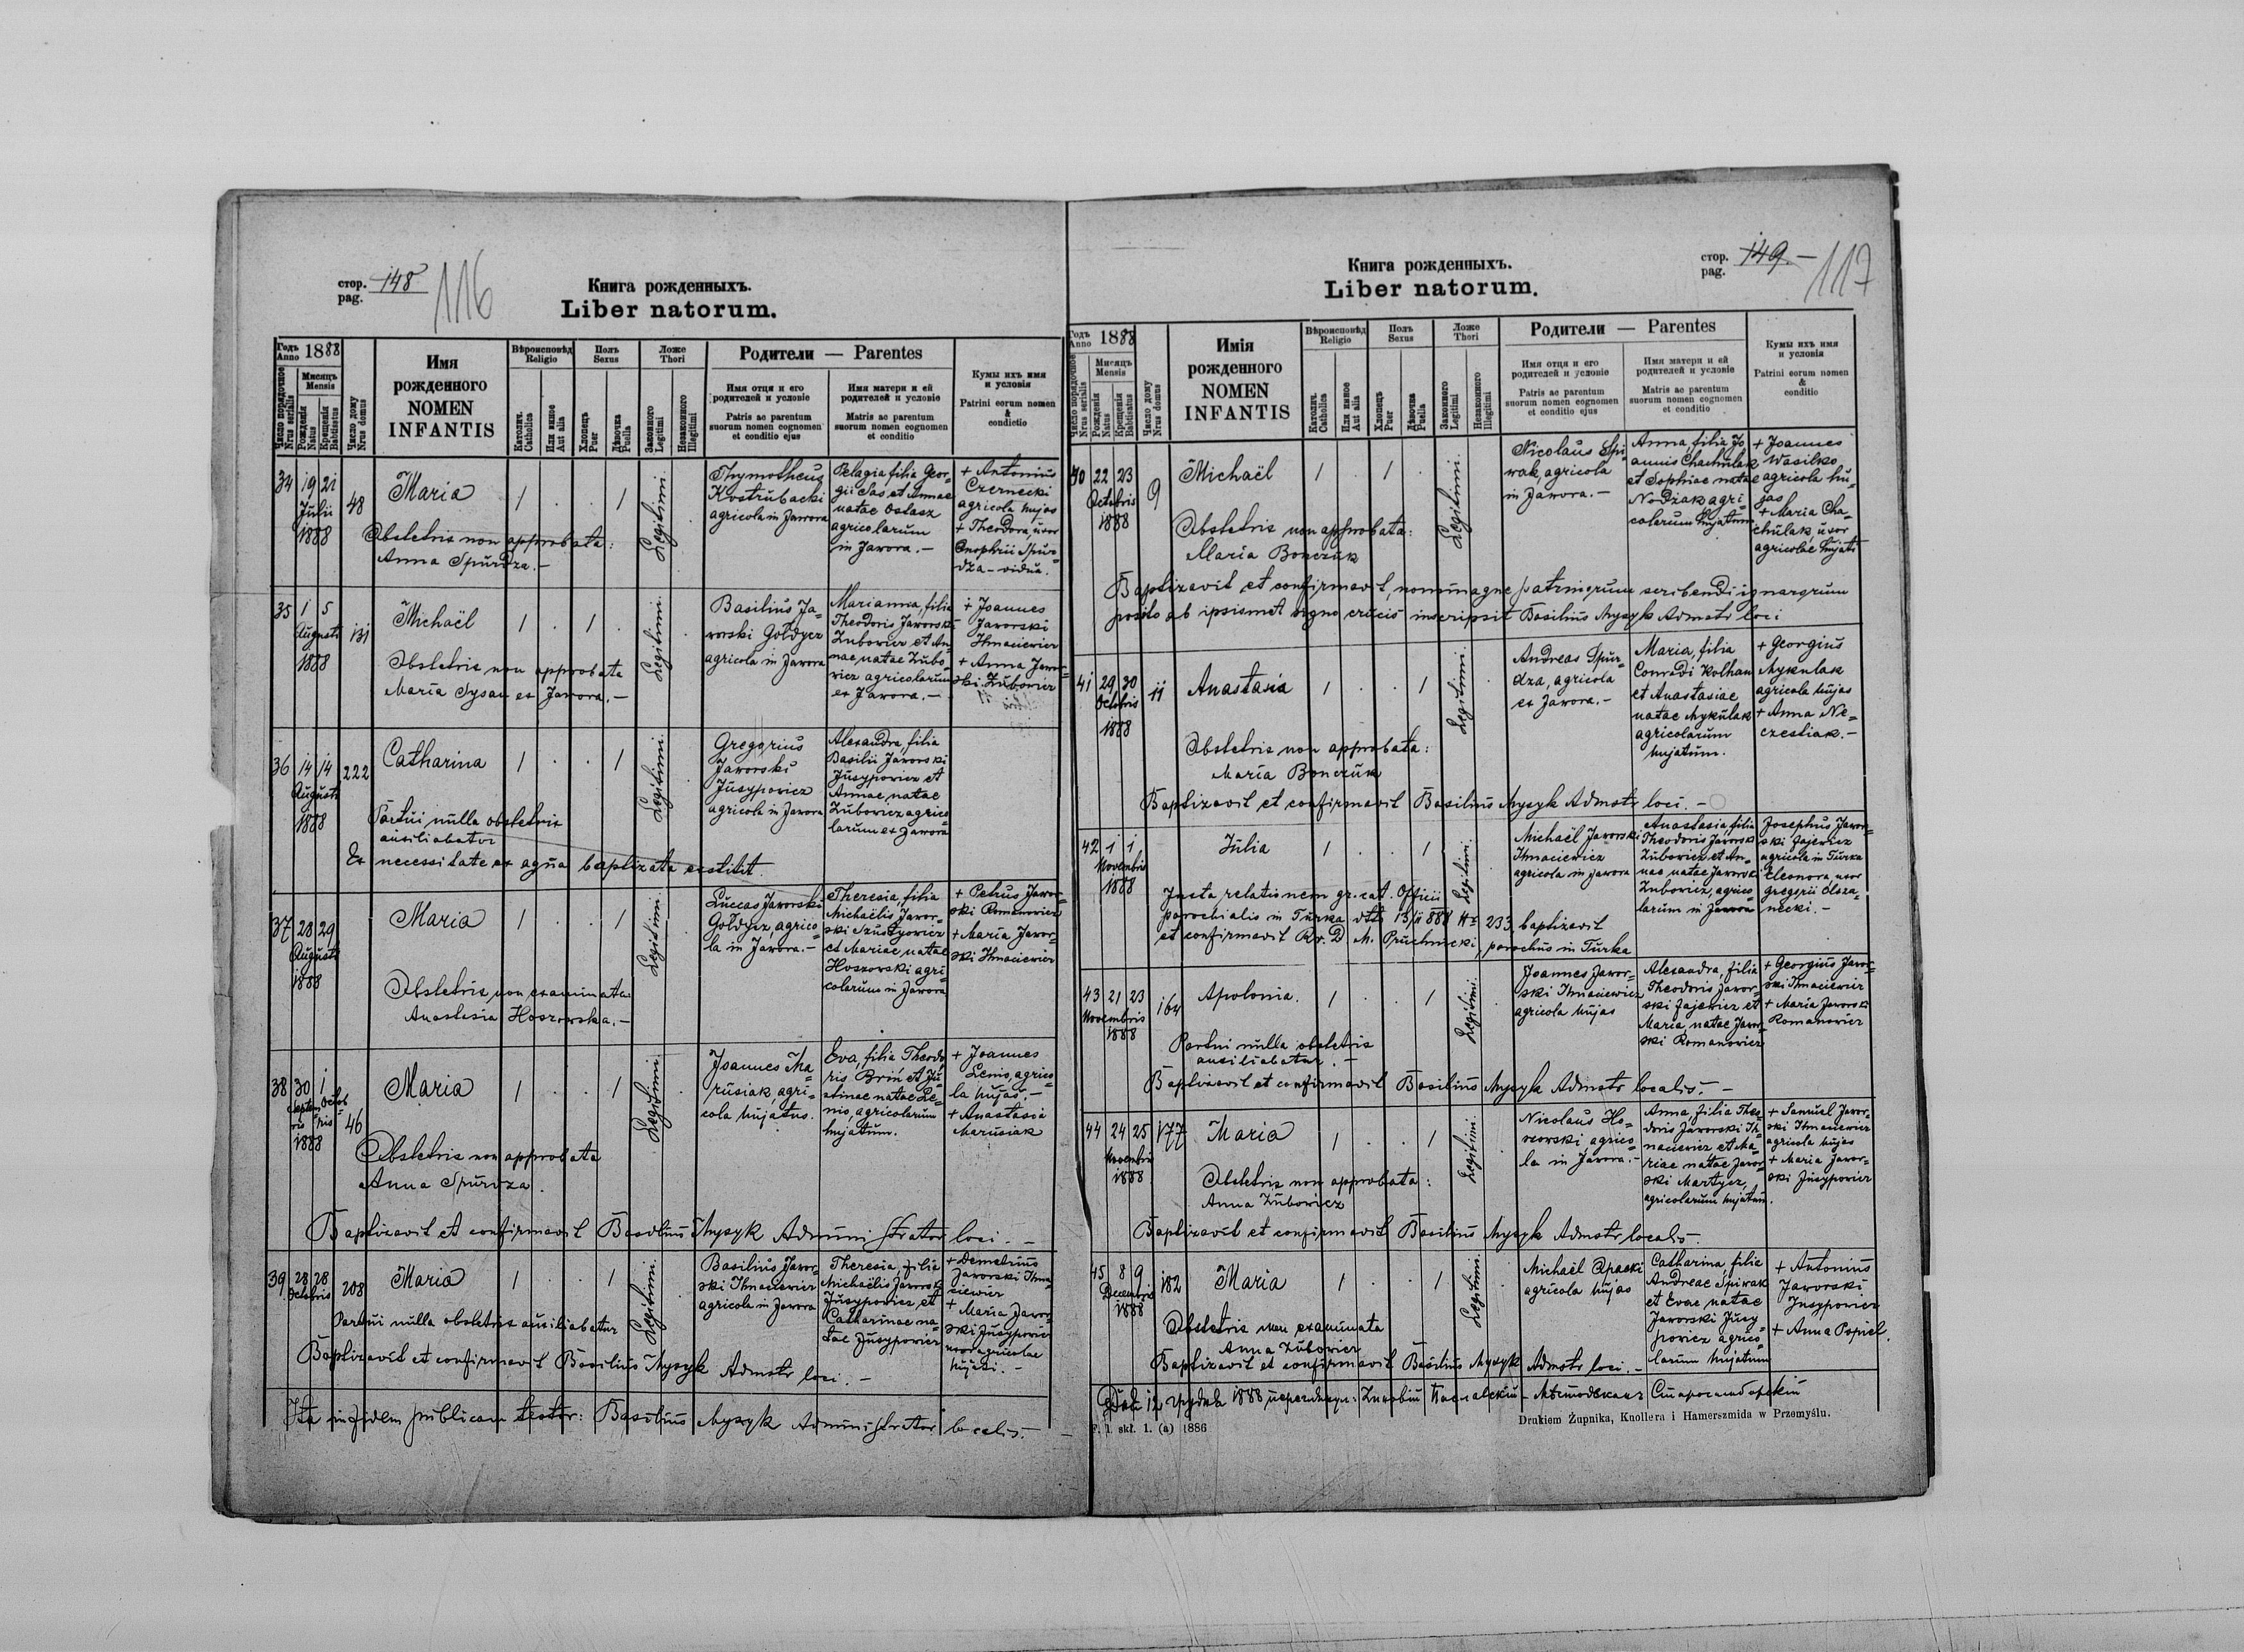 стор. pag. 148
116
Книга рожденныхъ.
Liber natorum.
Годъ Anno 1888
Число порядочное Nrus serialis
Мисяцъ Mensis
Рожденія Natus
Крещенія Babtisatus
Число дому Nrus domus
Имя рожденного
NOMEN INFANTIS
Вѣроисповѣд Religio
Католич. Catholica
Или инное Aut alia
Полъ Sexus
Хлопецъ Puer
Дѣвочка Puella
Ложе Thori
Законного Legitimi
Незаконного Illegitimi
Родители — Parentes
Имя отця и его родителей и условіе
Patris ac parentum suorum nomen cognomen et conditio ejus
Имя матери и ей родителей и условіе
Matris ac parentum suorum nomen cognomen et conditio
Кумы ихъ имя и условія
Patrini eorum nomen & condictio
34 19 21 Julii 1888 48
Maria
1 . . 1
Legitimi.
Thymotheus
Kostrubacki
agricola in Jawora
Pelagia, filia Geor-
gii Sas et Annae
natae Ostasz
agricolarum
in Jawora. —
+ Antonius
Czernecki
agricola hujas
+ Theodora, uxor
Onophrii Spur-
dza - vidua.
Obstetrix non approbata:
Anna Spurdza. —
35 1 5 Augusti 1888 131
Michaël
1 . 1 .
Legitimi.
Basilius Ja-
worski Gołdycz
agricola in Jawora
Marianna, filia
Theodoris Jaworski
Zubowicz et An-
nae, natae Zubo-
wicz agricolarum
ex Jawora. —
+ Joannes
Jaworski
Ihnaciewicz
+ Anna Jawor-
ski Zubowicz
Obstetrix non approbata
Maria Sysan ex Jawora. —
36 14 14 Augusti 1888 222
Catharina
1 . . 1
Legitimi.
Gregorius
Jaworski
Jusypowicz
agricola in Jawora
Alexandra, filia
Basilii Jaworski
Jusypowicz et
Annae, natae
Zubowicz agrico-
larum ex Jawora
Partui nulla obstetrix
auxiliabatur
Ex necessitate ex aqua baptizata exstitit.
37 28 29 Augusti 1888
Maria
1 . . 1
Legitimi.
Luccas Jaworski
Gołdycz, agrico-
la in Jawora. —
Theresia, filia
Michaëlis Jawor-
ski Szustyowicz
et Mariae natae
Hoszowski agri-
colarum in Jawora
+ Petrus Jawor-
ski Romanowicz
+ Maria Jawor-
ski Ihnaciewicz
Obstetrix non examinata
Anastasia Hoszowska. —
38 30 Septembris 1 Octobris 1888 46
Maria
1 . . 1
Legitimi.
Joannes Ma-
rusiak, agri-
cola hujatus.
Eva, filia Theodo-
ris Brin et Ju-
stinae natae Le-
nio, agricolarum
hujatum.
+ Joannes
Lenio, agrico-
la hujas. —
+ Anastasia
Marusiak
Obstetrix non approbata
Anna Spurdza.
Baptizavit et confirmavit Basilius Mysyk Administrator loci. —
39 28 28 Octobris 208
Maria
1 . . 1
Legitimi.
Basilius Jawor-
ski Ihnaciewicz
agricola in Jawora
Theresia, filia
Michaëlis Jaworski
Jusypowicz et
Catharinae na-
tae Jusypowicz
+ Demetrius
Jaworski Ihna-
ciewicz
+ Maria Jawor-
ski Jusypowicz
uxor agricolae
hujati. —
Partui nulla obstetrix auxiliabatur
Baptizavit et confirmavit Basilius Mysyk Admstr loci. —
Ita in fidem publicam testor: Basilius Mysyk Administrator localis. —
стор. pag. 149. —
117
Книга рожденныхъ.
Liber natorum.
Годъ Anno 1888
Число порядочное Nrus serialis
Мисяцъ Mensis
Рожденія Natus
Крещенія Babtisatus
Число дому Nrus domus
Имія рожденного
NOMEN INFANTIS
Вѣроисповѣд Religio
Католич. Catholica
Или инное Aut alia
Полъ Sexus
Хлопецъ Puer
Дѣвочка Puella
Ложе Thori
Законного Legitimi
Незаконного Illegitimi
Родители — Parentes
Имя отця и его родителей и условіе
Patris ac parentum suorum nomen cognomen et conditio ejus
Имя матери и ей родителей и условіе
Matris ac parentum suorum nomen cognomen et conditio
Кумы ихъ имя и условія
Patrini eorum nomen & conditio
40 22 23 Octobris 1888 9
Michaël
1 . 1 .
Legitimi.
Nicolaus Spi-
wak, agricola
in Jawora. —
Anna, filia Jo-
annis Chachulak
et Sophiae natae
Nodziak agri-
colarum hujatum
+ Joannes
Wasilko
agricola hu-
jas
+ Maria Cha-
chulak, uxor
agricolae hujatis
Obstetrix non approbata:
Maria Bonczuk
Baptizavit et confirmavit, nominaque patrinorum scribendi ignarorum
posito ab ipsismet signo crucis inscripsit Basilius Mysyk Admstr loci
41 29 30 Octobris 1888 11
Anastasia
1 . . 1
Legitimi.
Andreas Spur-
dza, agricola
ex Jawora. —
Maria, filia
Conradi Kolhan
et Anastasiae
natae Mykulak
agricolarum
hujatum.
+ Georgius
Mykulak
agricola hujas
+ Anna Ne-
czestiak. —
Obstetrix non approbata:
Maria Bonczuk
Baptizavit et confirmavit Basilius Mysyk Admstr loci. —
42 1 1 Novembris 1888
Julia
1 . . 1
Legitimi.
Michaël Jaworski
Ihnaciewicz
agricola in Jawora
Anastasia, filia
Theodoris Jaworski
Zubowicz et An-
nae natae Jaworski
Zubowicz, agrico-
larum in Jawora
Josephus Jawor-
ski Zajewicz
agricola in Turka
Eleonora, uxor
Gregorii Olsza-
necki. —
Juxta relationem gr. cat. Officii
parochialis in Turka dtto 13/11 888 No 233 baptizavit
et confirmavit Rv. D. M. Pruchnicki, parochus in Turka
43 21 23 Novembris 1888 164
Apolonia.
1 . . 1
Legitimi.
Joannes Jawor-
ski Ihnaciewicz
agricola hujas
Alexandra, filia
Theodoris Jawor-
ski Zajewicz et
Maria natae Jawor-
ski Romanowicz
+ Georgius Jawor-
ski Ihnaciewicz
+ Maria Jaworski
Romanowicz
Partui nulla obstetrix
auxiliabatur. —
Baptizavit et confirmavit Basilius Mysyk Admstr localis. —
44 24 25 Novembris 1888 177
Maria
1 . . 1
Legitimi.
Nicolaus Ho-
szowski agrico-
la in Jawora. —
Anna, filia Theo-
doris Jaworski Ih-
naciewicz et Ma-
riae natae Jawor-
ski Martycz,
agricolarum hujatum.
+ Samuel Jawor-
ski Ihnaciewicz
agricola hujas
+ Maria Jawor-
ski Jusypowicz
Obstetrix non approbata:
Anna Zubowicz
Baptizavit et confirmavit Basilius Mysyk Admstr localis.
45 8 9 Decembris 1888 182
Maria
1 . . 1
Legitimi.
Michaël Opacki
agricola hujas
Catharina, filia
Andreae Spiwak
et Evae natae
Jaworski Jusy-
powicz agrico-
larum hujatum
+ Antonius
Jaworski
Jusypowicz
+ Anna Popiel.
Obstetrix non examinata
Anna Zubowicz
Baptizavit et confirmavit Basilius Mysyk Admstr loci. —
12 грудня 1888
F. 1. skł. 1. (a) 1886
Drukiem Żupnika, Knollera i Hamerszmida w Przemyślu.